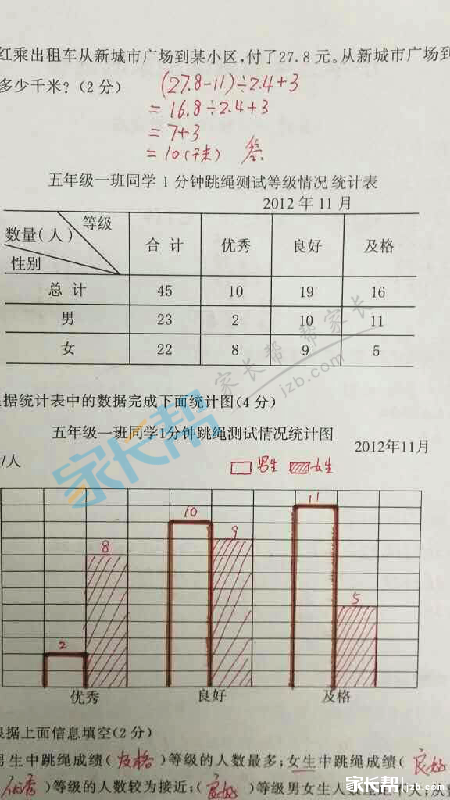 红乘出租车从新城市广场到某小区,付了27.8元。从新城市广场到
多少千米?(2分) (27.8-11)÷2.4+3
=16.8÷2.4+3
=7+3
=10(千米) 答
五年级一班同学1分钟跳绳测试等级情况统计表
2012年11月
等级
数量(人) 合计 优秀 良好 及格
性别
总计 45 10 19 16
男 23 2 10 11
女 22 8 9 5
据统计表中的数据完成下面统计图(4分)
五年级一班同学1分钟跳绳测试情况统计图
2012年11月
/人 男生 女生
2 8 10 9 11 5
优秀 良好 及格
根据上面信息填空(2分)
男生中跳绳成绩(及格)等级的人数最多;女生中跳绳成绩(良好
优秀)等级的人数较为接近;(良好)等级男女生人数
家长帮
家长帮 帮家长
jzb.com
家长帮 jzb.com